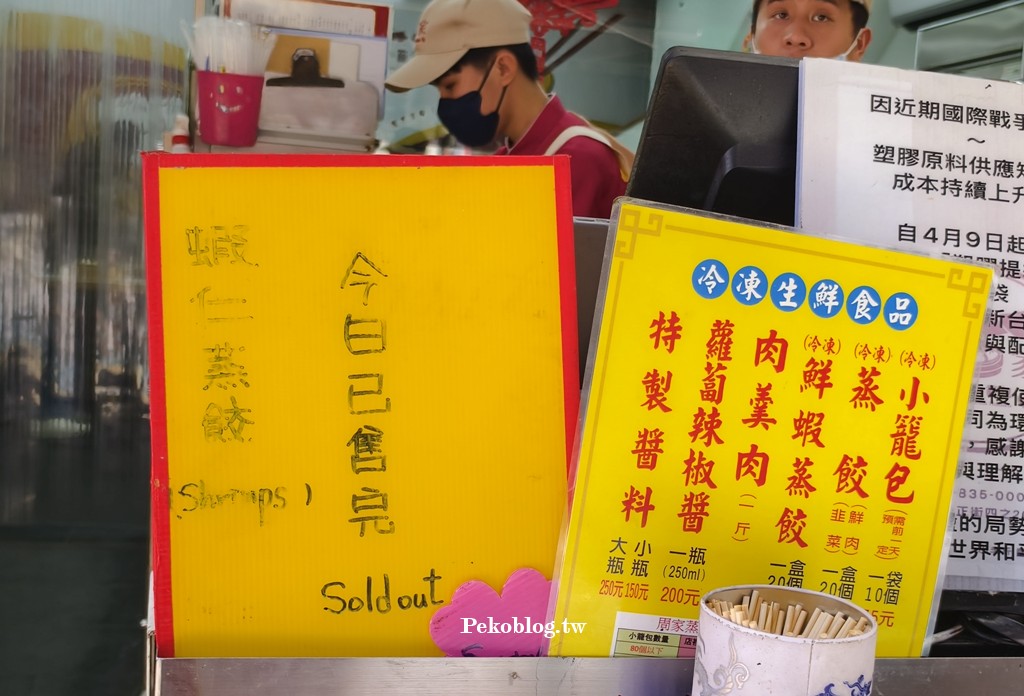 蝦仁蒸餃
(Shrimps)
今日已售完
Sold out
冷凍生鮮食品
(冷凍)小籠包(需前一天預定)
一袋
10個
(冷凍)蒸餃(鮮肉韭菜)
一盒
20個
(冷凍)鮮蝦蒸餃
一盒
20個
肉羹肉(一斤)
蘿蔔辣椒醬
一瓶
(250ml)
200元
特製醬料
小瓶
150元
大瓶
250元
周家蒸
小籠包數量
80個以下
因近期國際戰爭
～
塑膠原料供應
成本持續上升
自4月9日起
塑膠提
袋
新台
與配
重複使
同為環
，感謝
與理解
835-000
正街四之2
的局勢
世界和平
Pekoblog.tw